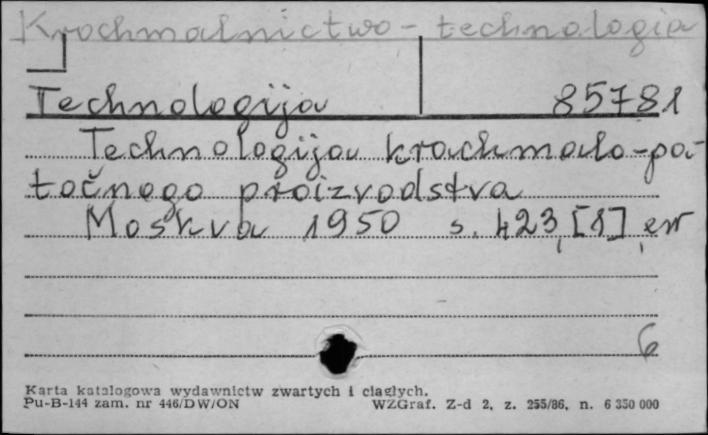 Krochmalnictwo - technologia
Technologija 85781
Technologija krachmalo-pa-
točnogo proizvodstva
Moskva 1950 s. 423, [1], err
6
Karta katalogowa wydawnictw zwartych i ciągłych.
Pu-B-144 zam. nr 446/DW/ON WZGraf. Z-d 2, z. 255/86, n. 6 350 000